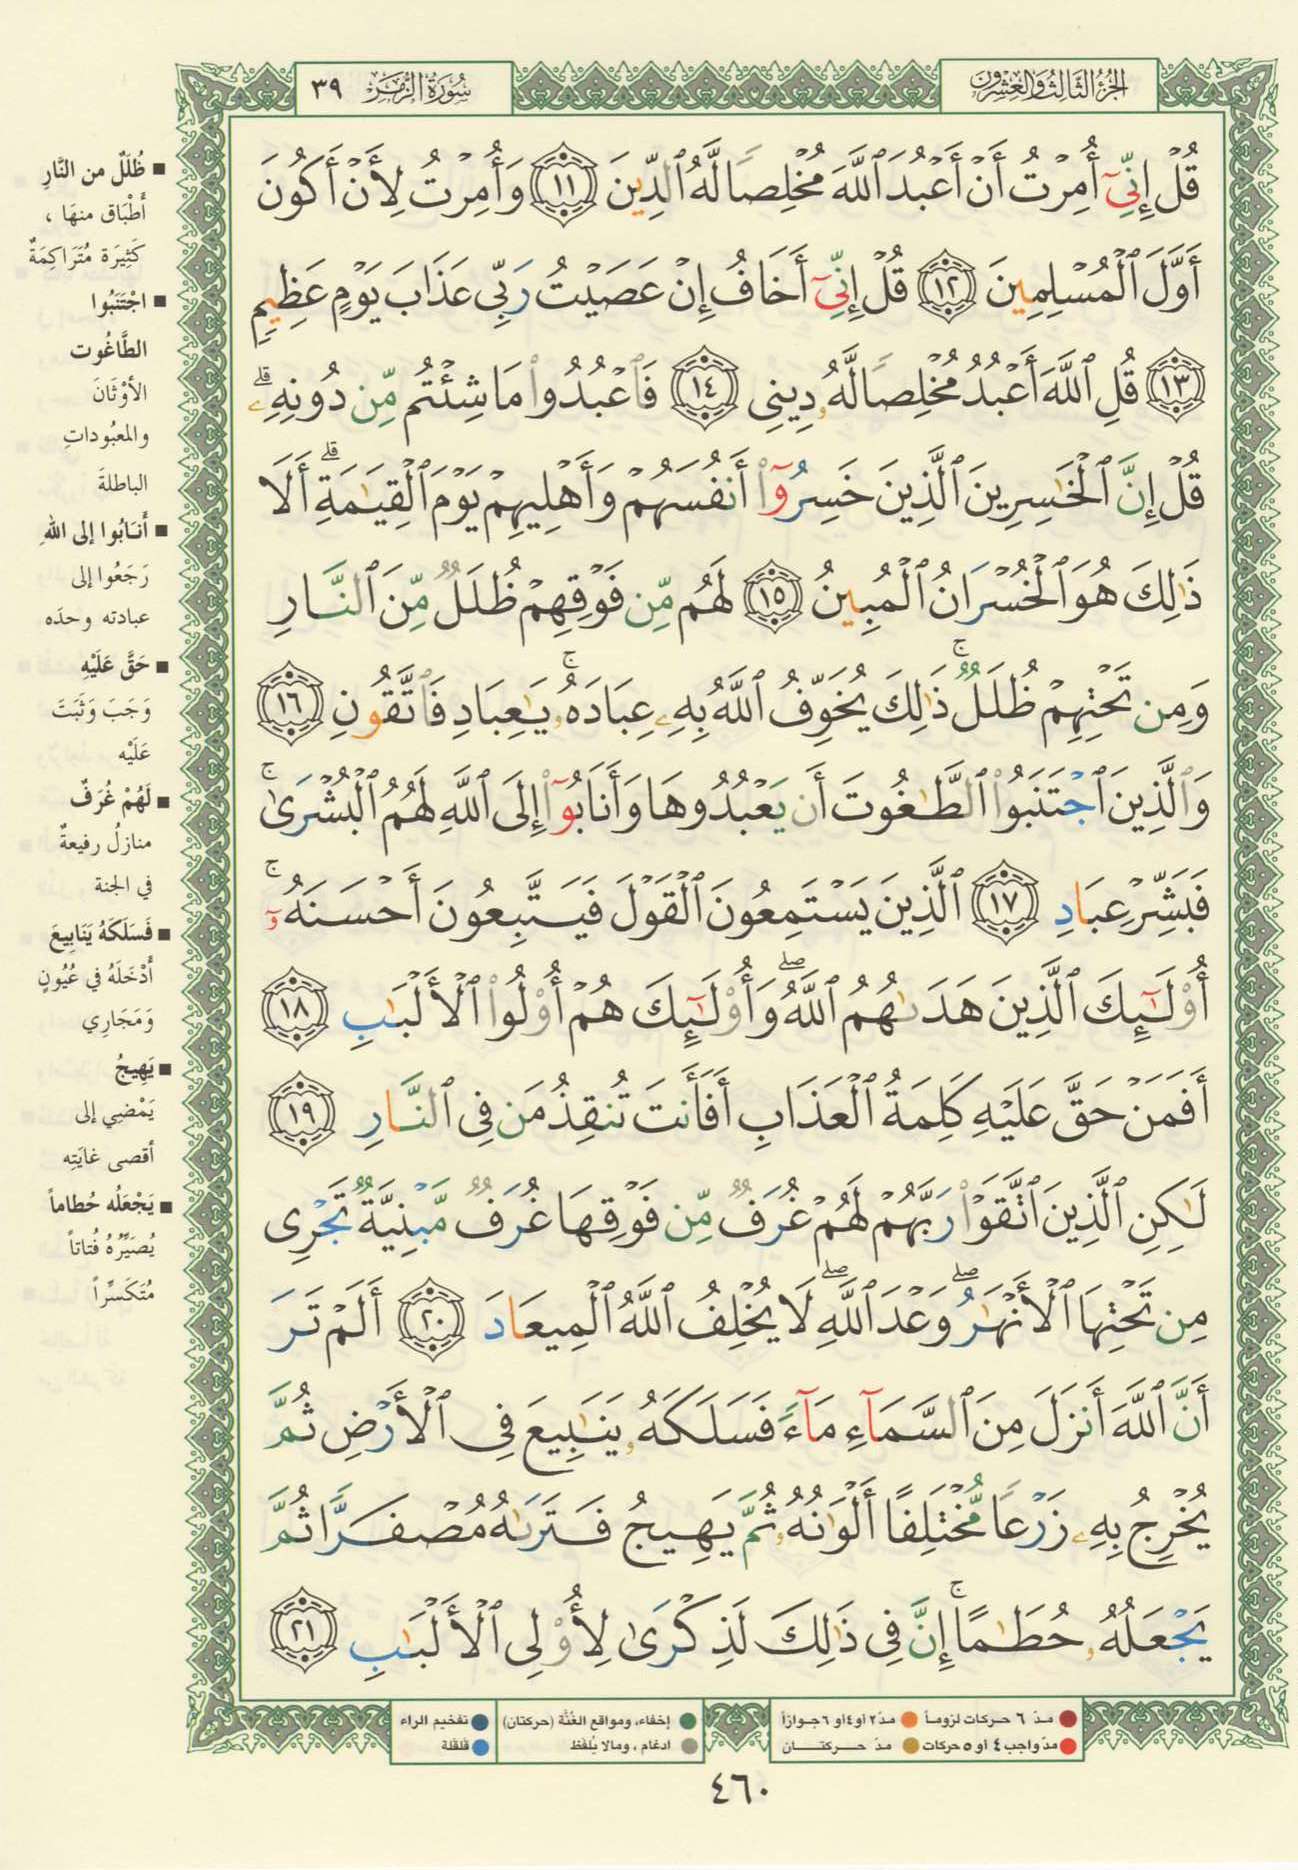 الجزء الثالث والعشرون
سورة الزمر ٣٩
قُلْ إِنِّىٓ أُمِرْتُ أَنْ أَعْبُدَ ٱللَّهَ مُخْلِصًا لَّهُ ٱلدِّينَ ١١ وَأُمِرْتُ لِأَنْ أَكُونَ
أَوَّلَ ٱلْمُسْلِمِينَ ١٢ قُلْ إِنِّىٓ أَخَافُ إِنْ عَصَيْتُ رَبِّى عَذَابَ يَوْمٍ عَظِيمٍ
١٣ قُلِ ٱللَّهَ أَعْبُدُ مُخْلِصًا لَّهُۥ دِينِى ١٤ فَٱعْبُدُوا۟ مَا شِئْتُم مِّن دُونِهِۦ ۗ
قُلْ إِنَّ ٱلْخَٰسِرِينَ ٱلَّذِينَ خَسِرُوٓا۟ أَنفُسَهُمْ وَأَهْلِيهِمْ يَوْمَ ٱلْقِيَٰمَةِ ۗ أَلَا
ذَٰلِكَ هُوَ ٱلْخُسْرَانُ ٱلْمُبِينُ ١٥ لَهُم مِّن فَوْقِهِمْ ظُلَلٌ مِّنَ ٱلنَّارِ
وَمِن تَحْتِهِمْ ظُلَلٌ ۚ ذَٰلِكَ يُخَوِّفُ ٱللَّهُ بِهِۦ عِبَادَهُۥ ۚ يَٰعِبَادِ فَٱتَّقُونِ ١٦
وَٱلَّذِينَ ٱجْتَنَبُوا۟ ٱلطَّٰغُوتَ أَن يَعْبُدُوهَا وَأَنَابُوٓا۟ إِلَى ٱللَّهِ لَهُمُ ٱلْبُشْرَىٰ ۚ
فَبَشِّرْ عِبَادِ ١٧ ٱلَّذِينَ يَسْتَمِعُونَ ٱلْقَوْلَ فَيَتَّبِعُونَ أَحْسَنَهُۥٓ ۚ
أُو۟لَٰٓئِكَ ٱلَّذِينَ هَدَىٰهُمُ ٱللَّهُ ۖ وَأُو۟لَٰٓئِكَ هُمْ أُو۟لُوا۟ ٱلْأَلْبَٰبِ ١٨
أَفَمَنْ حَقَّ عَلَيْهِ كَلِمَةُ ٱلْعَذَابِ أَفَأَنتَ تُنقِذُ مَن فِى ٱلنَّارِ ١٩
لَٰكِنِ ٱلَّذِينَ ٱتَّقَوْا۟ رَبَّهُمْ لَهُمْ غُرَفٌ مِّن فَوْقِهَا غُرَفٌ مَّبْنِيَّةٌ تَجْرِى
مِن تَحْتِهَا ٱلْأَنْهَٰرُ ۖ وَعْدَ ٱللَّهِ ۖ لَا يُخْلِفُ ٱللَّهُ ٱلْمِيعَادَ ٢٠ أَلَمْ تَرَ
أَنَّ ٱللَّهَ أَنزَلَ مِنَ ٱلسَّمَآءِ مَآءً فَسَلَكَهُۥ يَنَٰبِيعَ فِى ٱلْأَرْضِ ثُمَّ
يُخْرِجُ بِهِۦ زَرْعًا مُّخْتَلِفًا أَلْوَٰنُهُۥ ثُمَّ يَهِيجُ فَتَرَىٰهُ مُصْفَرًّا ثُمَّ
يَجْعَلُهُۥ حُطَٰمًا ۚ إِنَّ فِى ذَٰلِكَ لَذِكْرَىٰ لِأُو۟لِى ٱلْأَلْبَٰبِ ٢١
■ ظُلَلٌ من النَّارِ
أَطْبَاق منهَا ،
كَثِيرَة مُتَرَاكِمَةٌ
■ اجْتَنَبُوا
الطَّاغُوت
الأوْثَانَ
والمعبُوداتِ
الباطلةَ
■ أَنَابُوا إلى اللهِ
رَجَعُوا إلى
عبادته وحدَه
■ حَقَّ عَلَيْهِ
وَجَبَ وَثَبَتَ
عَلَيْه
■ لَهُمْ غُرَفٌ
منازلُ رفيعةٌ
في الجنة
■ فَسَلَكَهُ يَنَابِيعَ
أَدْخَلَهُ في عُيُونٍ
وَمَجَارِي
■ يَهِيجُ
يَمْضِي إلى
أقصى غايَتِه
■ يَجْعَلُه حُطاماً
يُصَيِّرُهُ فُتَاتاً
مُتَكَسِّراً
مدّ ٦ حركات لزوماً مدّ ٢ أو ٤ أو ٦ جوازاً إخفاء، ومواقع الغُنَّة (حركتان) تفخيم الراء
مدّ واجب ٤ أو ٥ حركات مدّ حركتان ادغام ، ومالا يُلفَظ قلقلة
٤٦٠